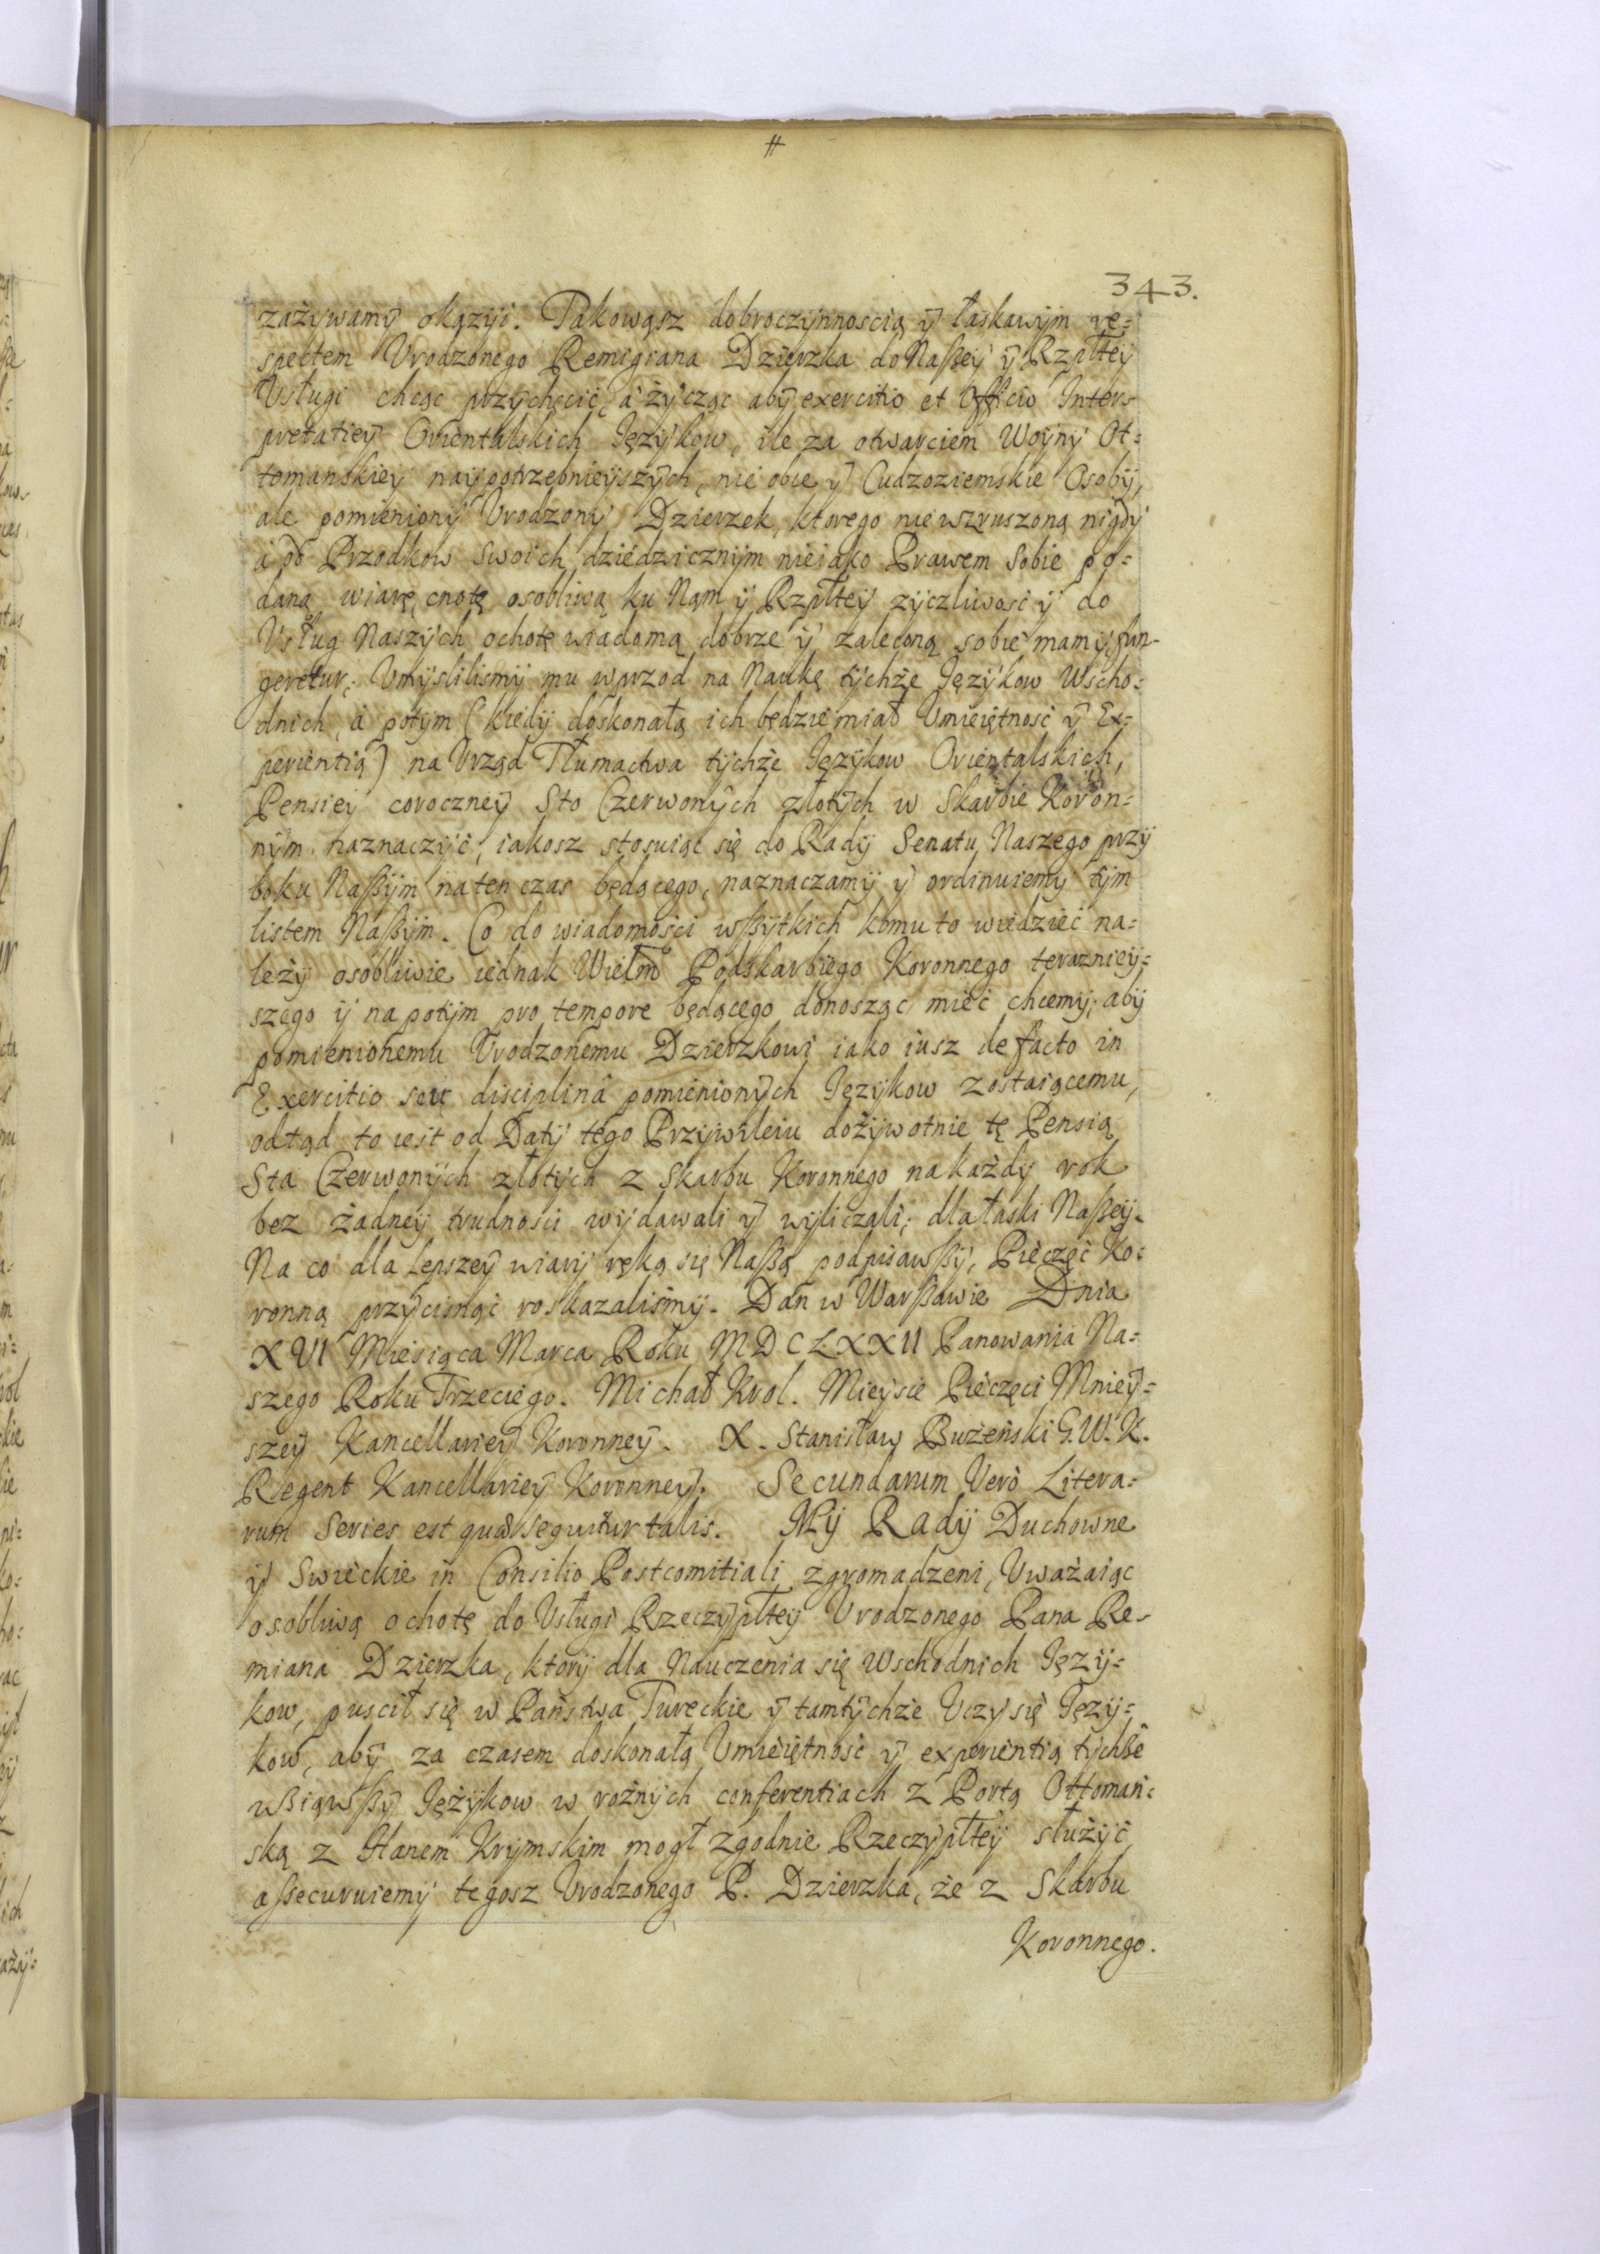 #
343.
zażywamy okazyi. Takowąsz dobroczynnoscią y łaskawym re:
spectem Vrodzonego Remigiana Dzierzka do Naßey y Rzpłtey
Vsługi chcąc przychęcić, á życząc aby exercitio et Officio Inter-
pretatiey Orientalskich Językow, ile za otwarciem Woyny Ot:
tomanskiey naypotrzebnieyszych, nie obce y Cudzoziemskie Osoby,
ale pomieniony Vrodzony Dzierzek, ktorego niewzruszoną nigdy
á od Przodkow swoich dziedzicznym nieiako Prawem sobie po:
daną wiarę, cnotę osobliwą ku Nąm y Rzpłtey zyczliwość y do
Vsług Naszych ochotę wiadomą dobrze y zaleconą sobie mamy, fun-
geretur; Vmyslilismy mu wprzod na Naukę tychże Językow Wscho:
dnich, á potym (kiedy doskonałą ich będzie miał Vmieiętność y Ex:
perientią) na Vrząd Tłumactwa tychże Językow Orientalskich,
Pensiey coroczney Sto Czerwonych złotych w Skarbie Koron:
nym naznaczyć, iakosz stosuiąc się do Rady Senatu Naszego przy
boku Naßym na ten czas będącego, naznaczamy y ordinuiemy tym
listem Naßym. Co do wiadomości wßytkich komu to wiedzieć na:
leży osobliwie iednak Wielm Podskarbiego Koronnego terazniey:
szego y napotym pro tempore będącego donosząc mieć chcemy; aby
pomienionemu Vrodzonemu Dzierzkowi iako iusz de facto in
Exercitio seu disciplinâ pomienionych Językow zostaiącemu,
odtąd to iest od Daty tego Przywileiu dożywotnie tę Pensią
Sta Czerwonych złotych z Skarbu Koronnego na każdy rok
bez żadney trudności wydawali y wyliczali; dla łaski Naßey.
Na co dla lepszey wiary ręką się Naßą podpisawßy, Pieczęć Ko:
ronną przycisnąć roskazalismy. Dan w Warßawie Dnia
XVI Miesiąca Marca Roku MDCLXXII Panowania Na:
szego Roku Trzeciego. Michał Krol. Mieysce Pieczęci Mniey:
szey Kancellariey Koronney. X. Stanisław Bużeński G.W.K.
Regent Kancellariey Koronney. Secundarum Verò Litera:
rum Series est quæ sequitur talis. My Rady Duchowne
y Swieckie in Consilio Postcomitiali zgromadzeni, Vważaiąc
osobliwą ochotę do Vsługi Rzeczypłtey Vrodzonego Pana Re-
miana Dzierzka, ktory dla Nauczenia się Wschodnich Języ:
kow, puscił się w Państwa Tureckie y tamtychże Vczy się Języ:
kow, aby za czasem doskonałą Vmieiętność y experientią tychße
wßiąwßy Językow w rożnych conferentiach z Portą Ottomań:
ską z Hanem Krymskim mogł zgodnie Rzeczypłtey służyć,
aßecuruiemy tegosz Vrodzonego P. Dzierzka, że z Skarbu
Koronnego.